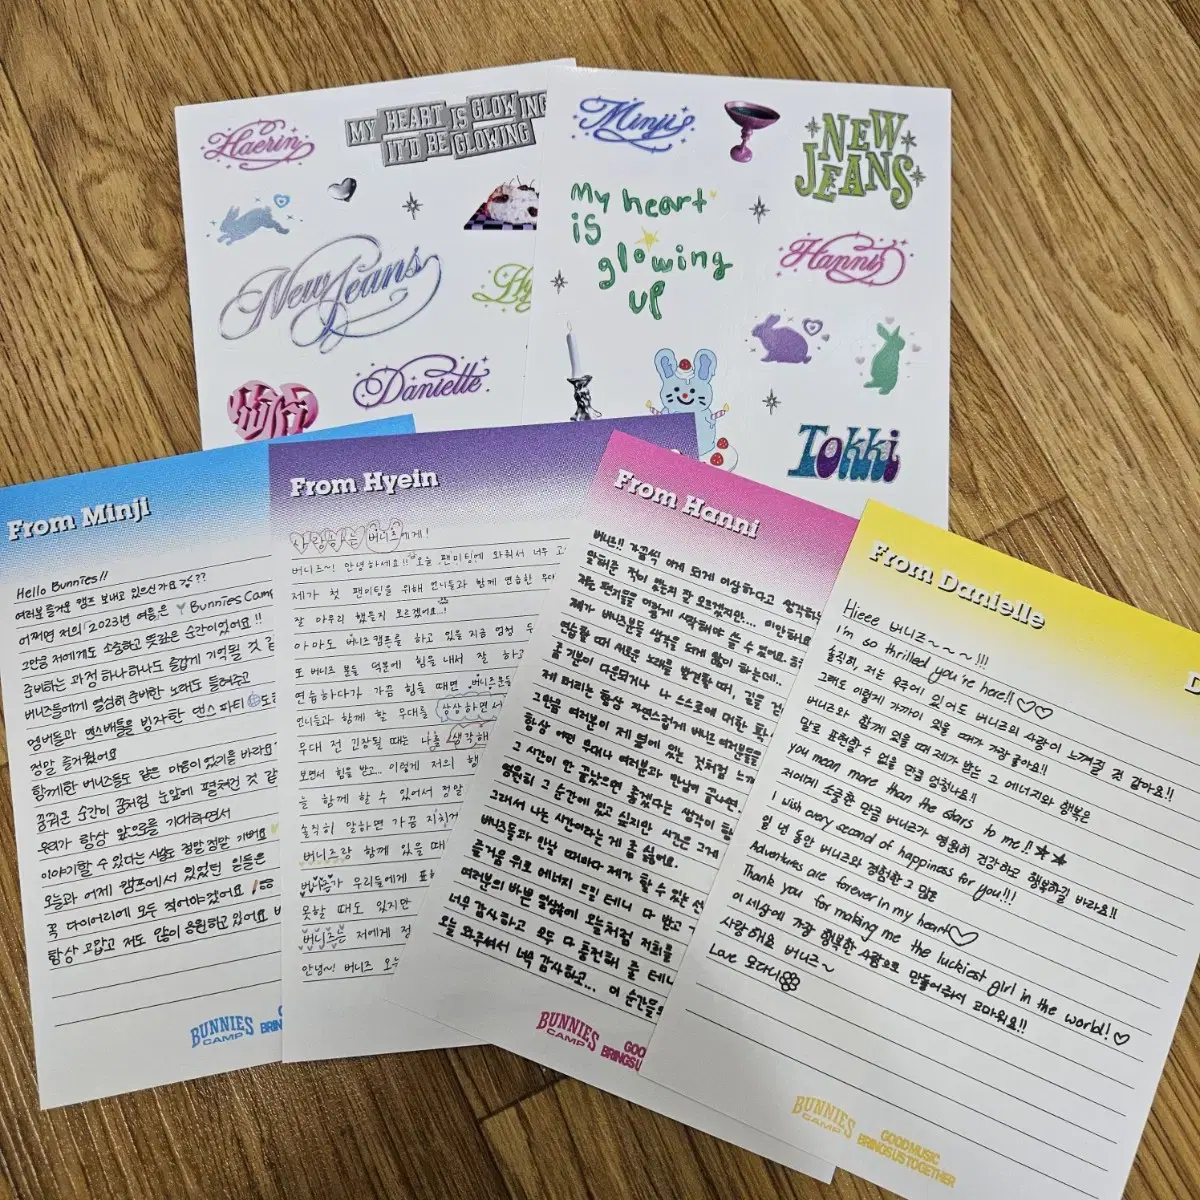 Haerin
MY HEART IS GLOWING
IT'D BE GLOWING
NewJeans
Hy
Danielle
Minji
NEW
JEANS
My heart
is
glowing
up
Hanni
Tokki
From Minji
Hello Bunnies!!
여러분 즐거운 캠프 보내고 있으신가요??
어쩌면 저의 2023년 여름은 Bunnies Camp
그만큼 저에게도 소중하고 뜻깊은 순간이었어요!!
준비하는 과정 하나하나도 즐겁게 기억될 것 같
버니즈들에게 열심히 준비한 노래도 들려주고
멤버들과 댄스배틀을 빙자한 댄스 파티
정말 즐거웠어요
함께한 버니즈들도 같은 마음이었기를 바라요
꿈꿔온 순간이 꿈처럼 눈앞에 펼쳐진 것 같
우리가 항상 앞으로를 기대하면서
이야기할 수 있다는 사실도 정말정말 기뻐요
오늘과 어제 캠프에서 있었던 일들은
꼭 다이어리에 모두 적어야겠어요
항상 고맙고 저도 많이 응원하고 있어요
BUNNIES
CAMP
From Hyein
사랑하는 버니즈에게!
버니즈~! 안녕하세요!! 오늘 팬미팅에 와줘서 너무 고
제가 첫 팬미팅을 위해 언니들과 함께 연습한 무대
잘 마무리 했을지 모르겠어요..!
아마도 버니즈캠프를 하고 있을 지금 엄청
또 버니즈 분들 덕분에 힘을 내서 잘 하고
연습하다가 가끔 힘들 때면 버니즈분들
언니들과 함께 할 무대를 상상하면서
무대 전 긴장될 때는 나를 생각해
보면서 힘을 받고... 이렇게 저의 행
늘 함께 할 수 있어서 정말
솔직히 말하면 가끔 지치거
버니즈랑 함께 있을 때
버니즈가 우리들에게 표
못할 때도 있지만
버니즈는 저에게 정
안녕~! 버니즈 오늘
From Hanni
버니즈!! 가끔씩 이게 되게 이상하다고 생각하는
말해준 적이 있는지 잘 모르겠지만... 미안해요
저는 편지들을 이렇게 시작해야 쓸 수 있어요.
제가 버니즈분들 생각을 되게 많이 하는데..
연습할 때 새로운 노래를 발견할 때, 길을 걷
좀 기분이 다운되거나 나 스스로에 대한 확
제 머리는 항상 자연스럽게 버니즈 여러분들을
그만큼 여러분이 제 옆에 있는 것처럼 느껴
항상 어떤 무대나 여러분과 만남이 끝나면,
그 시간이 안 끝났으면 좋겠다는 생각이 항
영원히 그 순간에 있고 싶지만 시간은 그게
그래서 나는 시간이라는 게 좀 싫어요.
버니즈들과 만날 때마다 제가 할 수 있는 선
즐거움 위로 에너지 드릴 테니 다 받고
여러분의 바쁜 일상속에 오늘처럼 저희를
너무 감사하고 모두 다 충전해 줄 테니
오늘 와주셔서 너무 감사하고... 이 순간들을
BUNNIES
CAMP
From Danielle
Hieee 버니즈~~~!!!
I'm so thrilled you're here!!
솔직히, 저는 우주에 있어도 버니즈의 사랑이 느껴질 것 같아요!!
그래도 이렇게 가까이 있을 때가 가장 좋아요!!
버니즈와 함께 있을 때 제가 받는 그 에너지와 행복은
말로 표현할 수 없을 만큼 엄청나요!!
you mean more than the stars to me!!
저에게 소중한 만큼 버니즈가 영원히 건강하고 행복하길 바라요!!
I wish every second of happiness for you!!!
일 년 동안 버니즈와 경험한 그 많은
Adventures are forever in my heart
Thank you for making me the luckiest girl in the world!
이 세상에 가장 행복한 사람으로 만들어줘서 고마워요!!
사랑해요 버니즈~
Love 모다니
BUNNIES
CAMP
GOOD MUSIC
BRINGS US TOGETHER